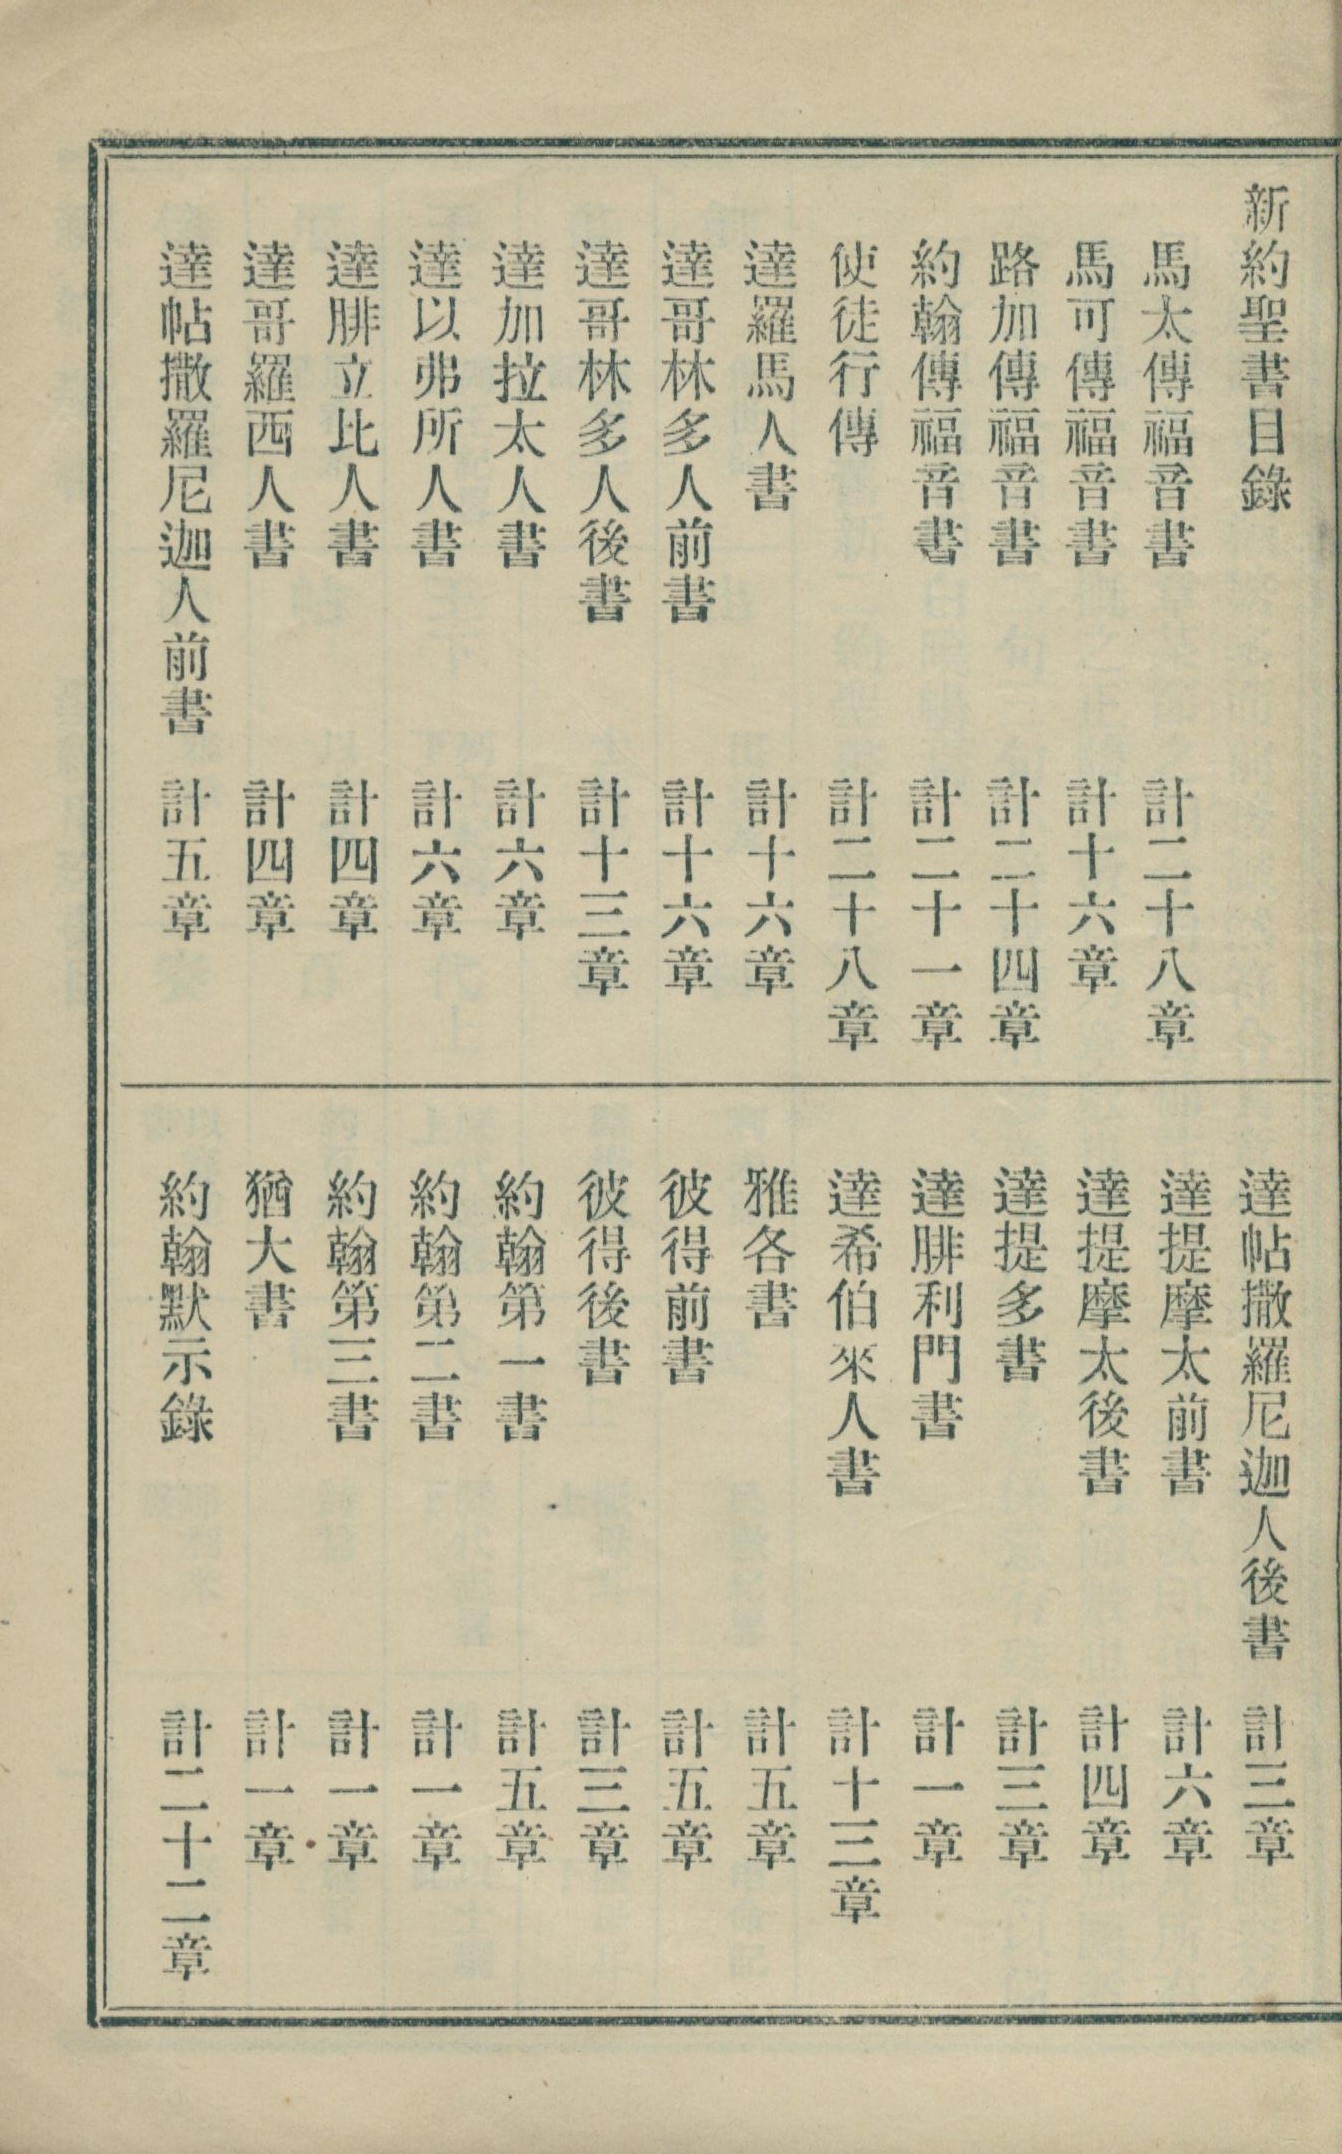 新約聖書目錄
馬太傳福音書 計二十八章
馬可傳福音書 計十六章
路加傳福音書 計二十四章
約翰傳福音書 計二十一章
使徒行傳 計二十八章
達羅馬人書 計十六章
達哥林多人前書 計十六章
達哥林多人後書 計十三章
達加拉太人書 計六章
達以弗所人書 計六章
達腓立比人書 計四章
達哥羅西人書 計四章
達帖撒羅尼迦人前書 計五章
達帖撒羅尼迦人後書 計三章
達提摩太前書 計六章
達提摩太後書 計四章
達提多書 計三章
達腓利門書 計一章
達希伯來人書 計十三章
雅各書 計五章
彼得前書 計五章
彼得後書 計三章
約翰第一書 計五章
約翰第二書 計一章
約翰第三書 計一章
猶大書 計一章
約翰默示錄 計二十二章